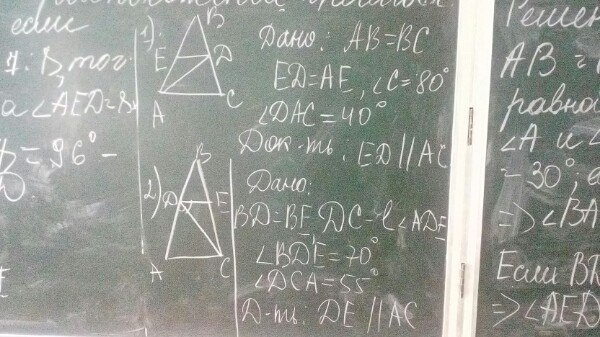 если
1)
B
E
D
A
C
Дано: AB=BC
ED=AE, ∠C=80°
∠DAC=40°
Док-ть: ED||AC
2)
B
D
E
A
C
Дано:
BD=BE, DC-
∠ADE
∠BDE=70°
∠DCA=55°
Д-ть: DE||AC
=96°-
а ∠AED=
Решен
AB =
равна
∠A и ∠
-30°,
=> ∠BA
Если BK
=> ∠AED